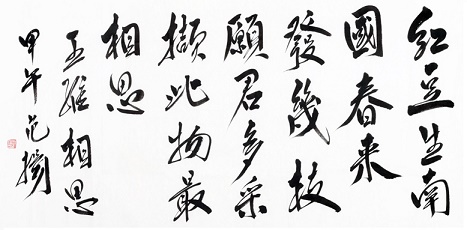 红豆生南
國春来
發幾枝
願君多采
擷此物最
相思
王維相思
甲午范揚